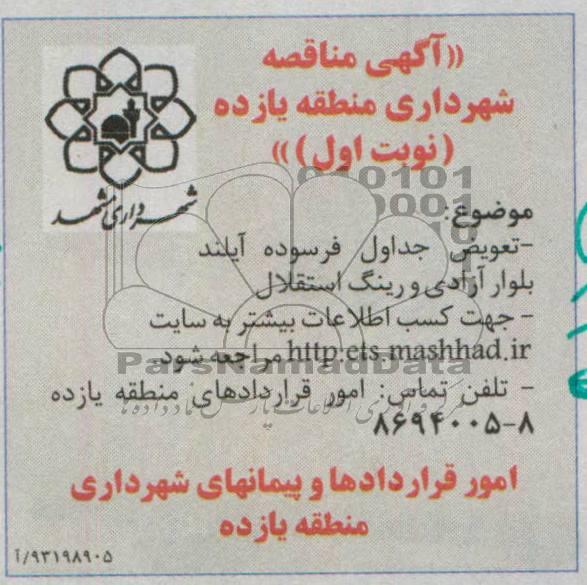 ((آگهی مناقصه
شهرداری منطقه یازده
(نوبت اول)))
شهرداری مشهد
موضوع:
-تعویض جداول فرسوده آیلند
بلوار آزادی و رینگ استقلال
- جهت کسب اطلاعات بیشتر به سایت
http:ets.mashhad.ir مراجعه شود.
ParsNamadData
- تلفن تماس: امور قراردادهای منطقه یازده
۸۶۹۴۰۰۵-۸
امور قراردادها و پیمانهای شهرداری
منطقه یازده
۹۳۱۹۸۹۰۵/آ